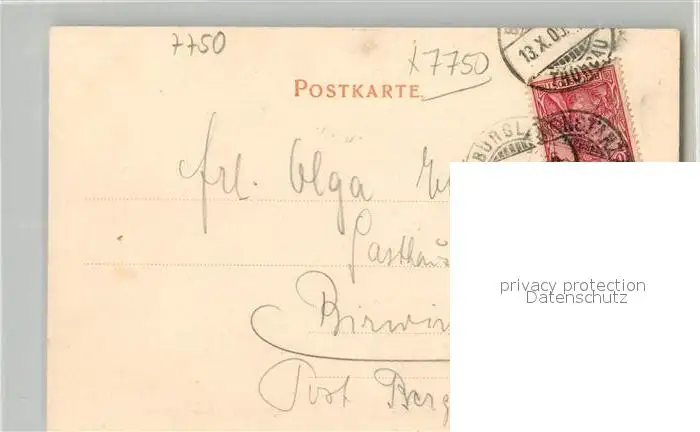 7750
x7750
13.X.0
POSTKARTE
Frl. Olga
Gasthaus
Birwin
Post Berg
privacy protection
Datenschutz